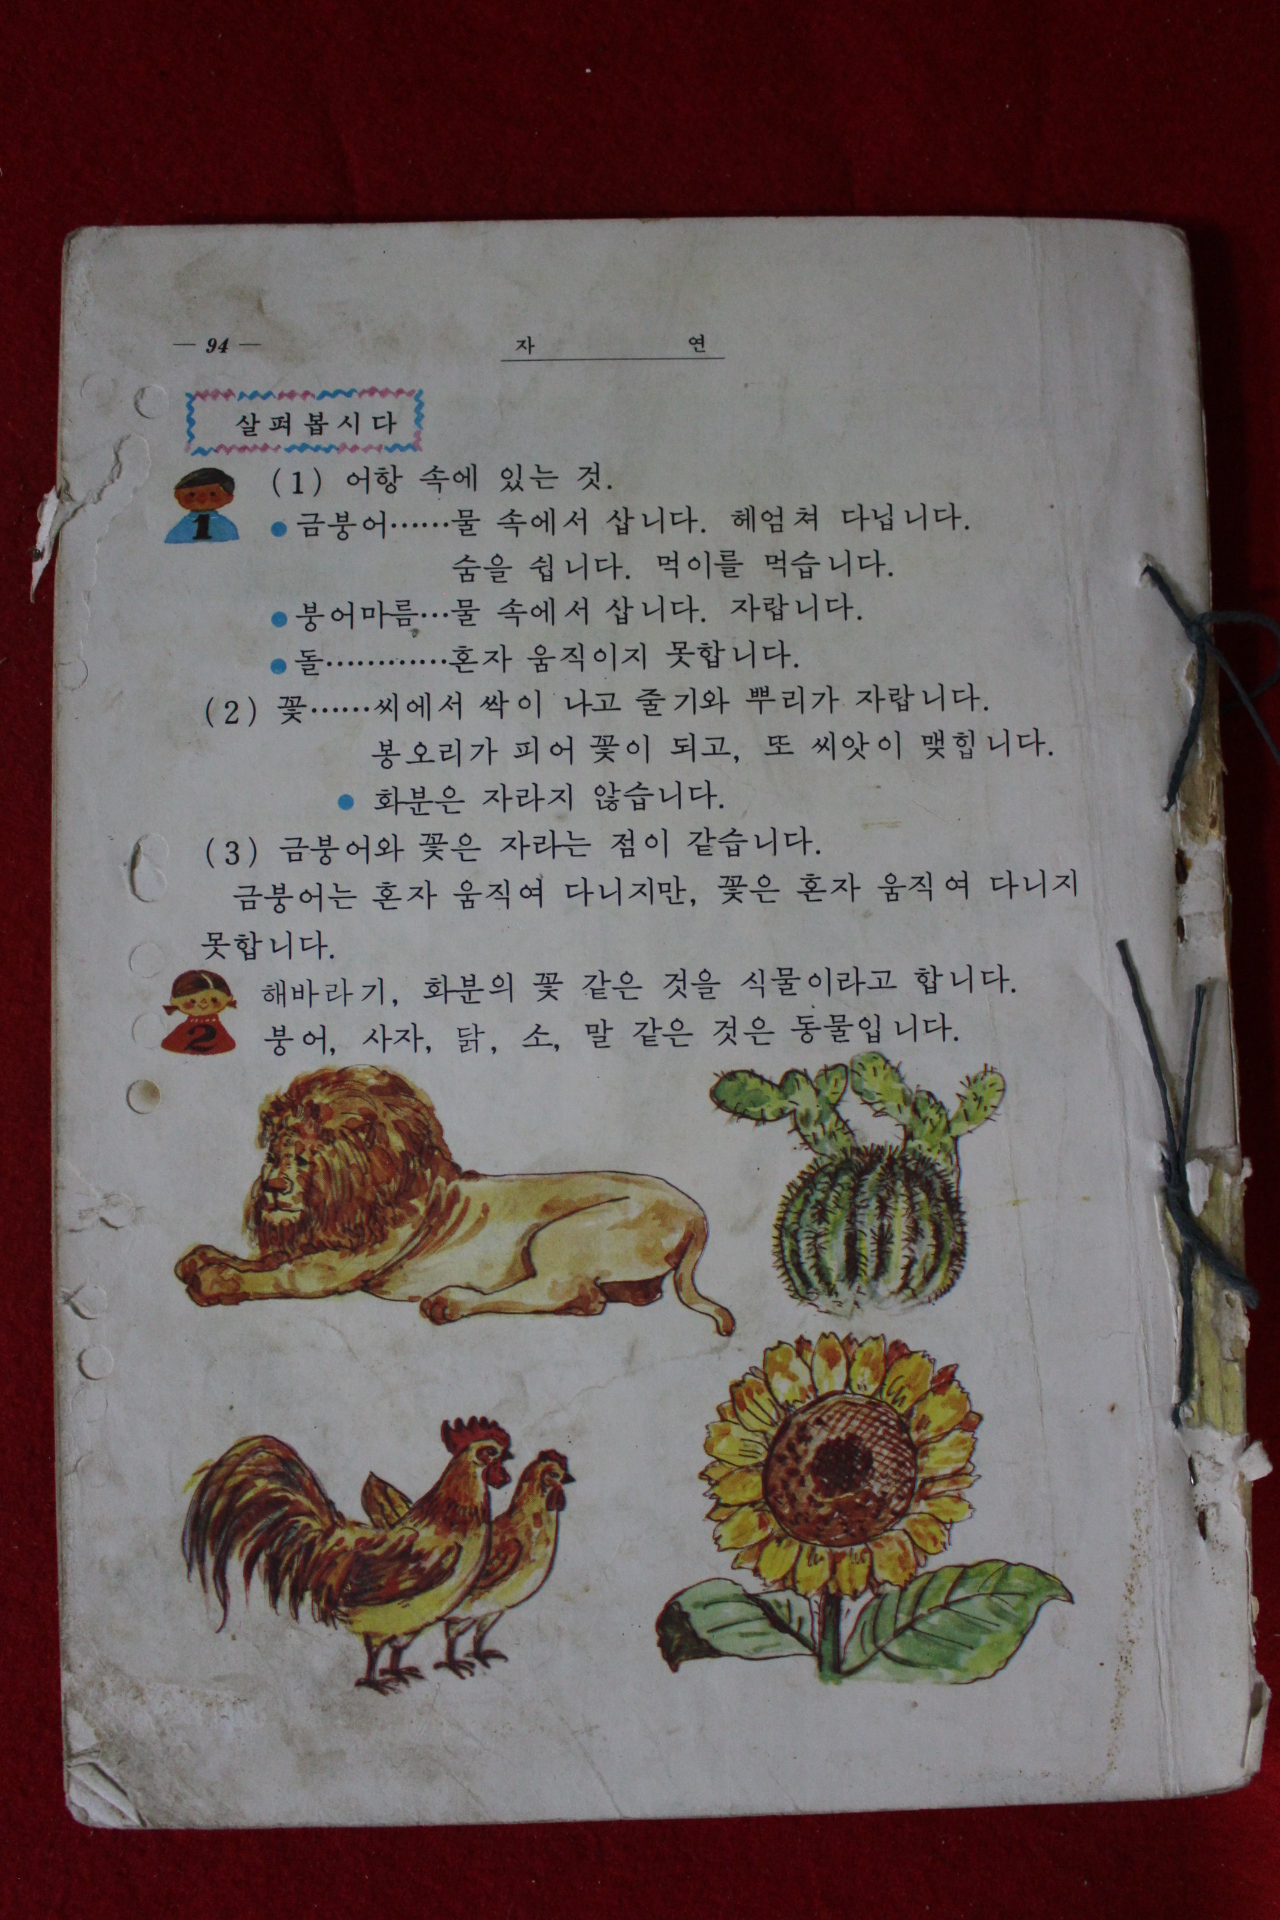 — 94 —
자 연
살펴봅시다
1
(1) 어항 속에 있는 것.
● 금붕어……물 속에서 삽니다. 헤엄쳐 다닙니다.
숨을 쉽니다. 먹이를 먹습니다.
● 붕어마름…물 속에서 삽니다. 자랍니다.
● 돌…………혼자 움직이지 못합니다.
(2) 꽃……씨에서 싹이 나고 줄기와 뿌리가 자랍니다.
봉오리가 피어 꽃이 되고, 또 씨앗이 맺힙니다.
● 화분은 자라지 않습니다.
(3) 금붕어와 꽃은 자라는 점이 같습니다.
금붕어는 혼자 움직여 다니지만, 꽃은 혼자 움직여 다니지
못합니다.
2
해바라기, 화분의 꽃 같은 것을 식물이라고 합니다.
붕어, 사자, 닭, 소, 말 같은 것은 동물입니다.